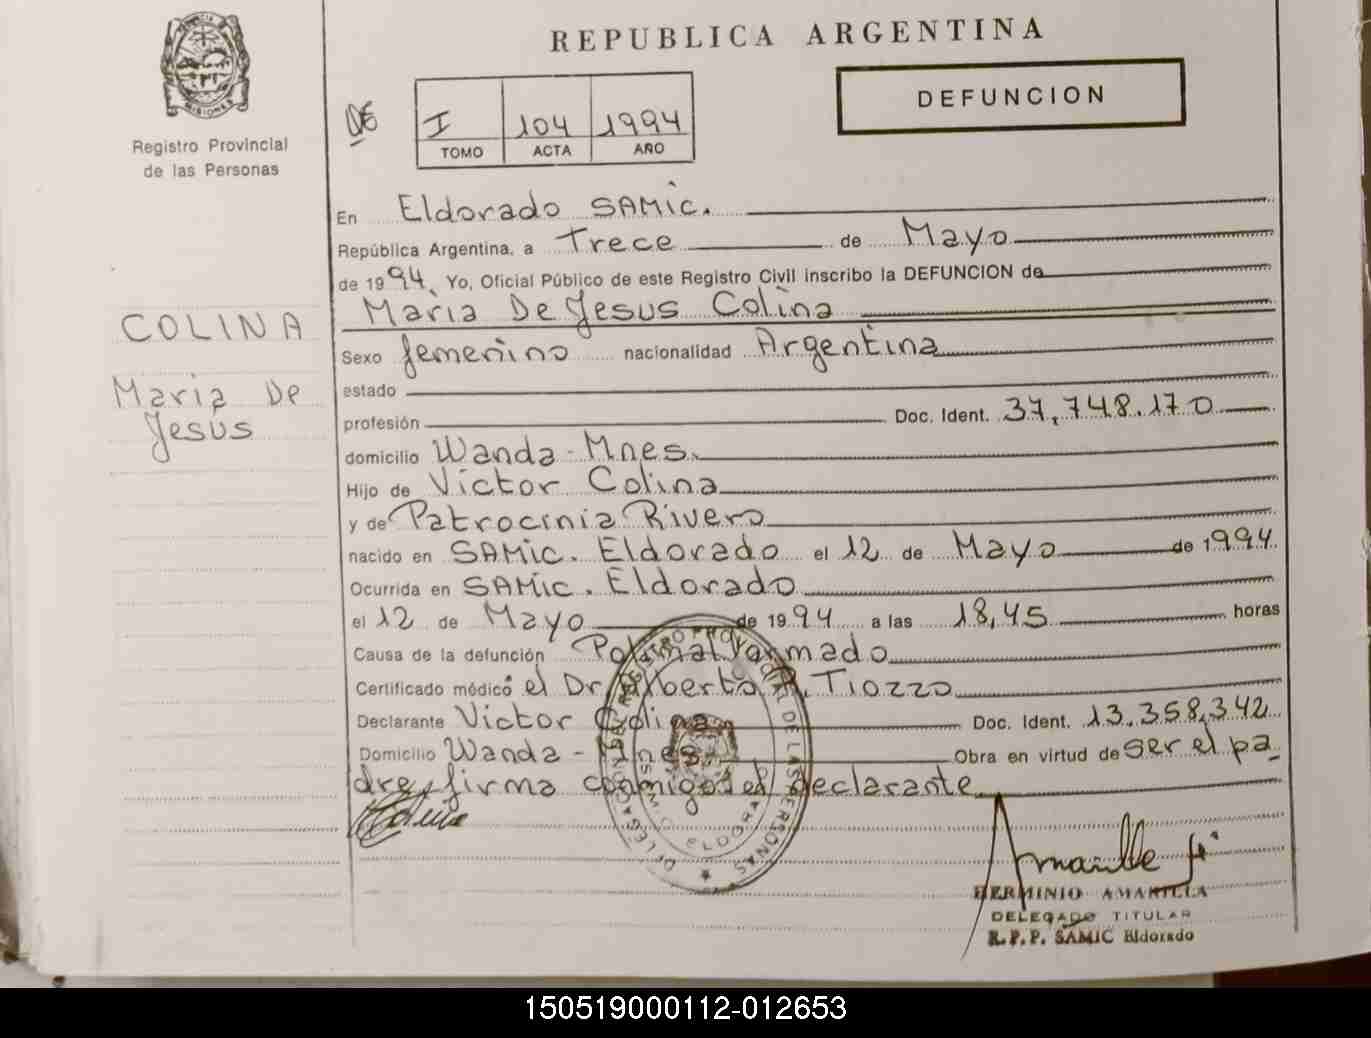 REPUBLICA ARGENTINA
MISIONES
Registro Provincial
de las Personas
DE
I 104 1994
TOMO ACTA AÑO
DEFUNCION
COLINA
Maria De
Jesús
En Eldorado SAMIC.
República Argentina, a Trece de Mayo
de 1994, Yo, Oficial Público de este Registro Civil inscribo la DEFUNCION de
Maria De Jesus Colina
Sexo femenino nacionalidad Argentina
estado
profesión Doc. Ident. 37.748.170
domicilio Wanda - Mnes.
Hijo de Victor Colina
y de Patrocinia Rivero
nacido en SAMIC. Eldorado el 12 de Mayo de 1994
Ocurrida en SAMIC. Eldorado
el 12 de Mayo de 1994 a las 18,45 horas
Causa de la defunción Polimalformado
Certificado médico el Dr. Alberto A. Tiozzo
Declarante Victor Colina Doc. Ident. 13.358.342
Domicilio Wanda - Mnes. Obra en virtud de ser el pa
dre, firma conmigo el declarante
DELEGACION DEL REGISTRO PROVINCIAL DE LAS PERSONAS
ELDORADO
HERMINIO AMARILLA
DELEGADO TITULAR
R.P.P. SAMIC Eldorado
150519000112-012653